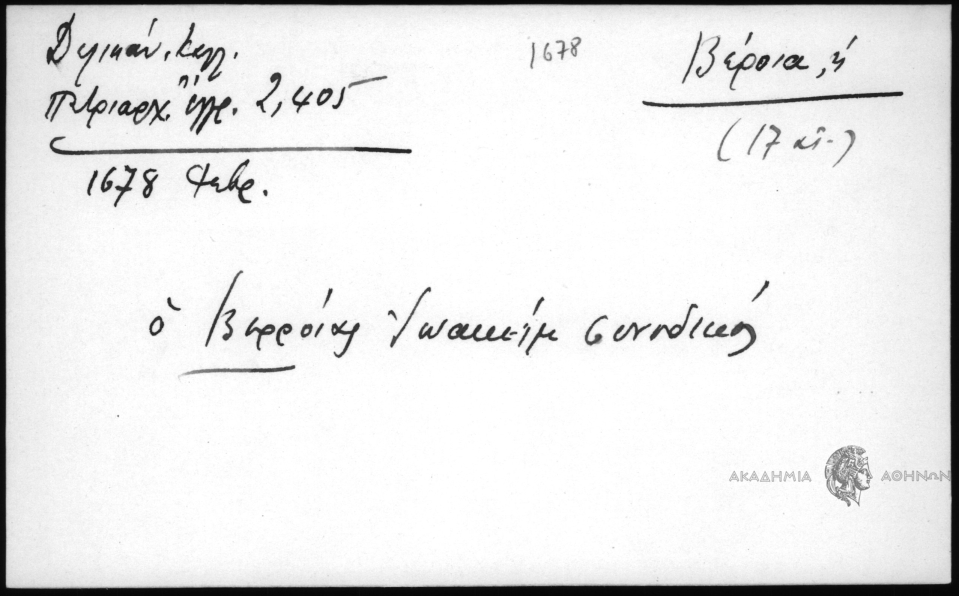 Δελικάν. Καλλ.
Πατριαρχ. ἔγγρ. 2,405
1678 Φεβρ.
1678
Βέροια, ἡ
(17 αἰ.)
ὁ Βερροίας Ἰωακεὶμ συνοδικός
ΑΚΑΔΗΜΙΑ ΑΘΗΝΩΝ